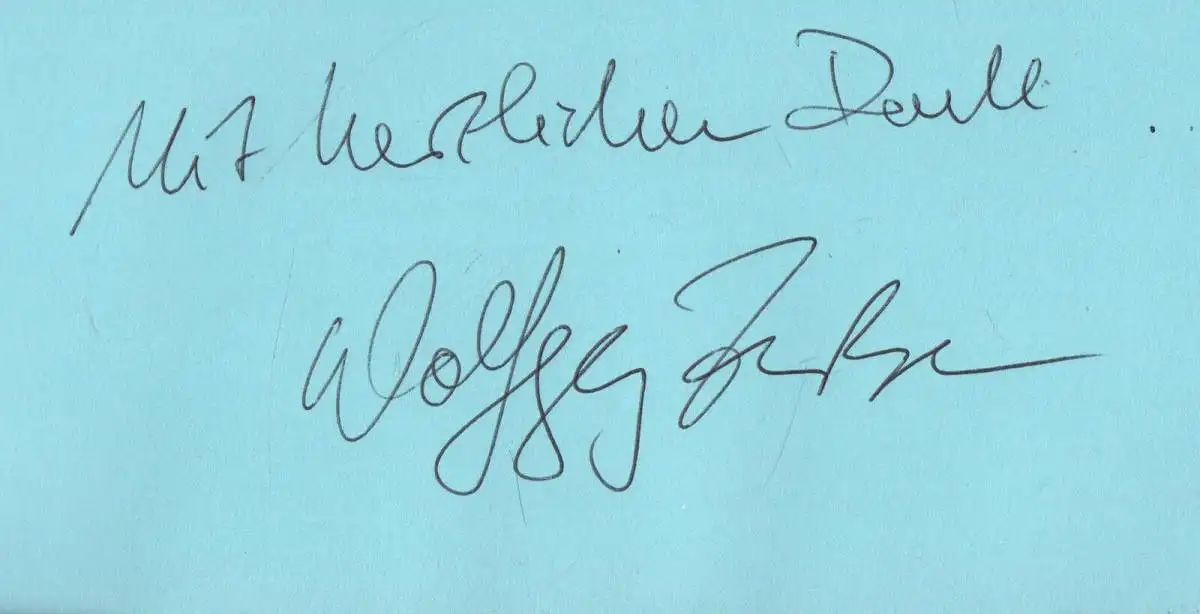 Mit herzlichem Dank
Wolfgang